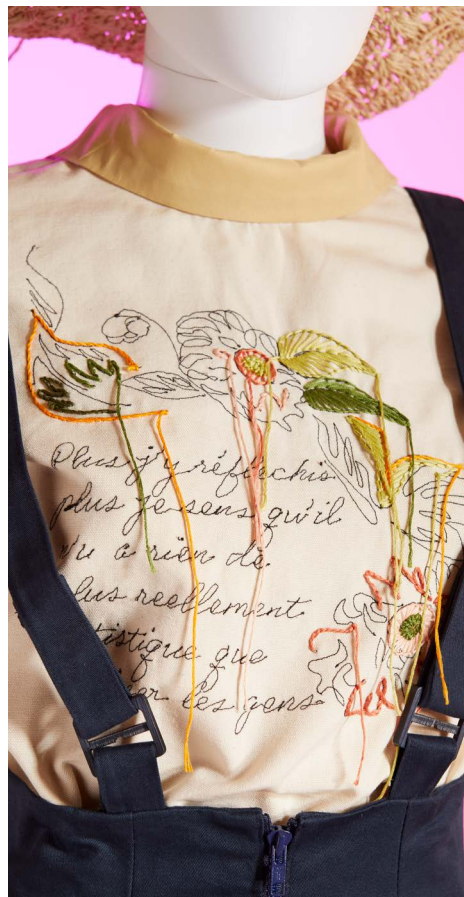 plus j'y réfléchis
plus je sens qu'il
n'y a rien de
plus reellement
tistique que
les gens